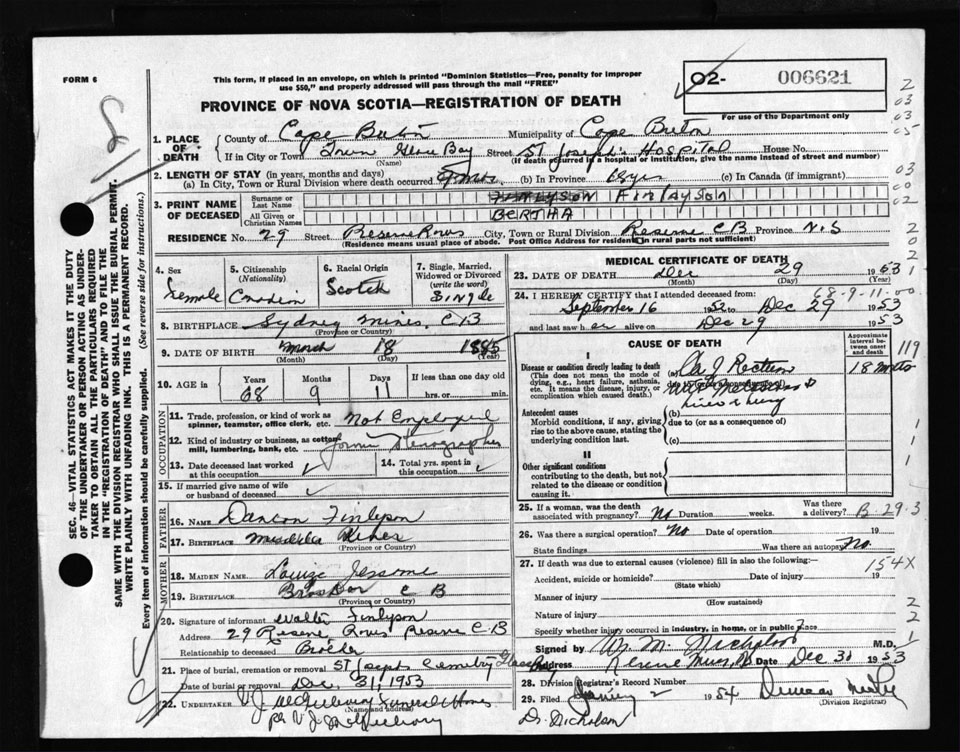 FORM 6
This form, if placed in an envelope, on which is printed "Dominion Statistics—Free, penalty for improper
use $50," and properly addressed will pass through the mail "FREE"
O2- 006621
For use of the Department only
PROVINCE OF NOVA SCOTIA—REGISTRATION OF DEATH
1. PLACE OF DEATH
County of Cape Breton Municipality of Cape Breton
If in City or Town Town Glace Bay Street St Joseph's Hospital House No.
(Name) (If death occurred in a hospital or institution, give name instead of street and number)
2. LENGTH OF STAY (in years, months and days)
(a) In City, Town or Rural Division where death occurred (b) In Province 68 yrs (c) In Canada (if immigrant)
3. PRINT NAME OF DECEASED
Surname or Last Name Finlayson
All Given or Christian Names BERTHA
RESIDENCE No. 29 Street Reserve Rows City, Town or Rural Division Reserve C B Province N.S
(Residence means usual place of abode. Post Office Address for residents in rural parts not sufficient)
4. Sex Female
5. Citizenship (Nationality) Canadian
6. Racial Origin Scotch
7. Single, Married, Widowed or Divorced (write the word) Single
8. BIRTHPLACE Sydney Mines, C B
(Province or Country)
9. DATE OF BIRTH March 18 1885
(Month) (Day) (Year)
10. AGE in Years Months Days If less than one day old
68 9 11 hrs. or min.
OCCUPATION
11. Trade, profession, or kind of work as spinner, teamster, office clerk, etc. Not Employed
12. Kind of industry or business, as cotton mill, lumbering, bank, etc. Former Stenographer
13. Date deceased last worked at this occupation
14. Total yrs. spent in this occupation
15. If married give name of wife or husband of deceased
FATHER
16. NAME Duncan Finlyson
17. BIRTHPLACE
(Province or Country)
MOTHER
18. MAIDEN NAME Louize Jerome
19. BIRTHPLACE C B
(Province or Country)
20. Signature of informant Walter Finlyson
Address 29 Reserve Rows Reserve C-B
Relationship to deceased Brother
21. Place of burial, cremation or removal St Josephs Cemetry Glace Bay
Date of burial or removal Dec. 31, 1953
22. UNDERTAKER V J McGillivray Funeral Home
per V. J. McGillivray
MEDICAL CERTIFICATE OF DEATH
23. DATE OF DEATH Dec 29 1953
(Month) (Day) (Year)
68-9-11-00
24. I HEREBY CERTIFY that I attended deceased from
September 16 1952 to Dec 29 1953
and last saw her alive on Dec 29 1953
CAUSE OF DEATH
Approximate interval between onset and death
I
Disease or condition directly leading to death
(This does not mean the mode of dying, e.g., heart failure, asthenia, etc. It means the disease, injury, or complication which caused death.)
(a) Ca of Rectum 18 mths
due to (or as a consequence of)
with Metastases
liver & lung
Antecedent causes
Morbid conditions, if any, giving rise to the above cause, stating the underlying condition last.
(b)
due to (or as a consequence of)
(c)
II
Other significant conditions
contributing to the death, but not related to the disease or condition causing it.
25. If a woman, was the death associated with pregnancy? No Duration weeks. Was there a delivery? B.29.3
26. Was there a surgical operation? No Date of operation 19
State findings Was there an autopsy? No.
27. If death was due to external causes (violence) fill in also the following:— 154X
Accident, suicide or homicide? Date of injury 19
(State which)
Manner of injury
(How sustained)
Nature of injury
Specify whether injury occurred in industry, in home, or in public place
Signed by W. M. Nicholson M.D.
Address Reserve Mines, Date Dec 31 1953
28. Division Registrar's Record Number
29. Filed January 2 1954 Duncan
(Division Registrar)
Dr. Nicholson
SEC. 46—VITAL STATISTICS ACT MAKES IT THE DUTY
OF THE UNDERTAKER OR PERSON ACTING AS UNDER-
TAKER TO OBTAIN ALL THE PARTICULARS REQUIRED
IN THE "REGISTRATION OF DEATH" AND TO FILE THE
SAME WITH THE DIVISION REGISTRAR WHO SHALL ISSUE THE BURIAL PERMIT.
WRITE PLAINLY WITH UNFADING INK. THIS IS A PERMANENT RECORD.
Every item of information should be carefully supplied. (See reverse side for instructions.)
2
03
03
05
03
00
02
2
0
2
2
1
119
1
1
2
2
1